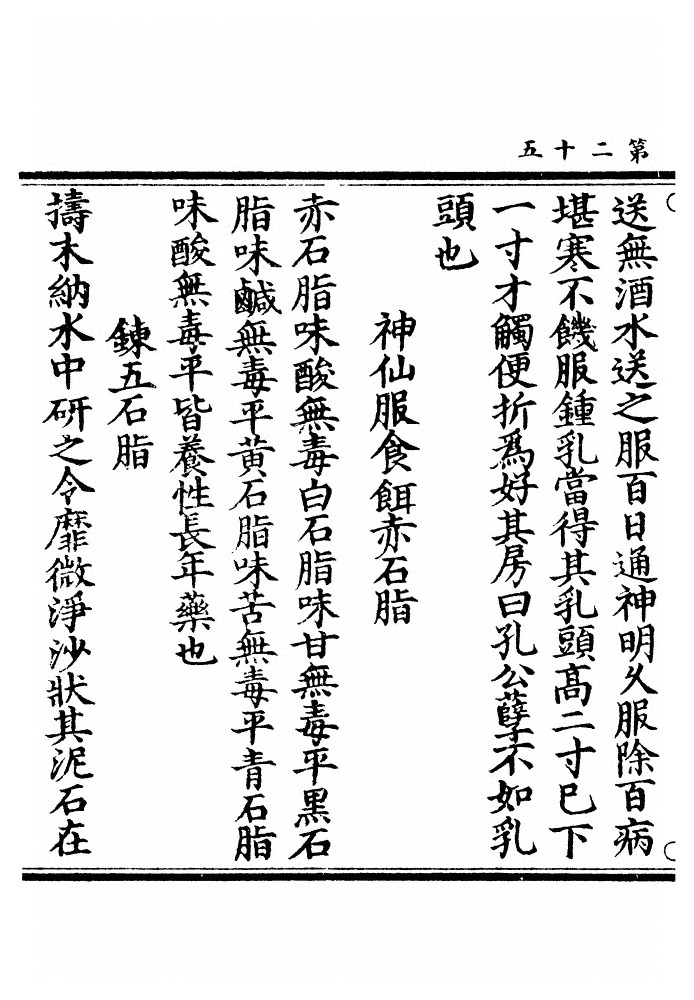 第二十五
送無酒水送之服百日通神明久服除百病
堪寒不饑服鍾乳當得其乳頭高二寸巳下
一寸才觸便折為好其房曰孔公孽不如乳
頭也
神仙服食餌赤石脂
赤石脂味酸無毒白石脂味甘無毒平黑石
脂味鹹無毒平黃石脂味苦無毒平青石脂
味酸無毒平皆養性長年藥也
鍊五石脂
擣末納水中研之令靡微淨沙狀其泥石在